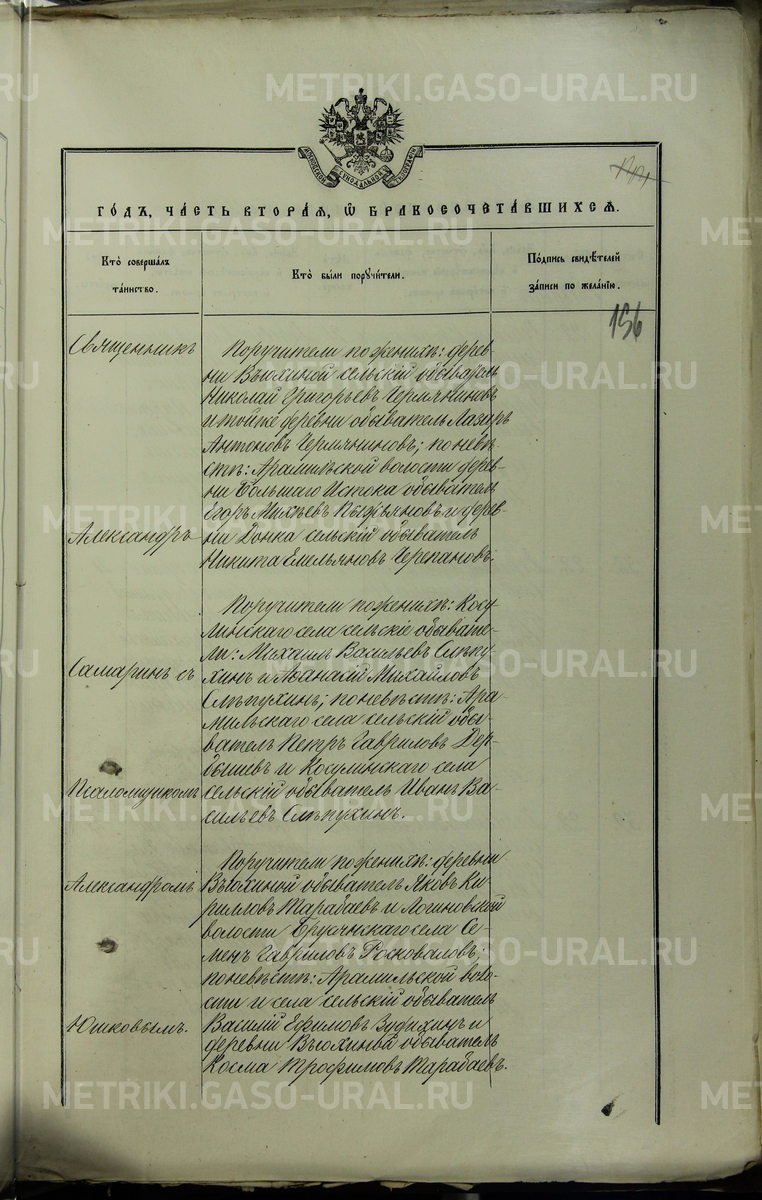 METRIKI.GASO-URAL.RU
МОСКОВСКОЙ СѴНОДАЛЬНОЙ ТИПОГРАФІИ
ГОДЪ, ЧАСТЬ ВТОРАЯ, Ѡ БРАКОСОЧЕТАВШИХСЯ.
Кто совершалъ
таинство.
Кто были поручители.
Подпись свидѣтелей
записи по желанію.
156
Священникъ
Александръ
Самаринъ съ
Псаломщикомъ
Александромъ
Юшковымъ.
Поручители по женихѣ: дерев-
ни Вьюхиной сельскій обыватель
Николай Григорьевъ Чермяниновъ
и тойже деревни обыватель Лазарь
Антоновъ Чермяниновъ; по невѣ-
стѣ: Арамильской волости дерев-
ни Большаго Истока обыватель
Егоръ Михѣевъ и дерев-
ни сельскій обыватель
Никита Емельяновъ Черепановъ.
Поручители по женихѣ: Косу-
линскаго села сельскіе обывате-
ли: Михаилъ Васильевъ Слѣпу-
хинъ и Аѳанасій Михайловъ
Слѣпухинъ; по невѣстѣ: Ара-
мильскаго села сельскій обы-
ватель Петръ Гавриловъ Дер-
бышевъ и Косулинскаго села
сельскій обыватель Иванъ Ва-
сильевъ Слѣпухинъ.
Поручители по женихѣ: деревни
Вьюхиной обыватель Яковъ Ки-
рилловъ Тарабаевъ и Логиновской
волости села Се-
менъ Гавриловъ Росковаловъ;
по невѣстѣ: Арамильской воло-
сти и села сельскій обыватель
Василій Ефимовъ Зудихинъ и
деревни Вьюхиной обыватель
Косма Трофимовъ Тарабаевъ.